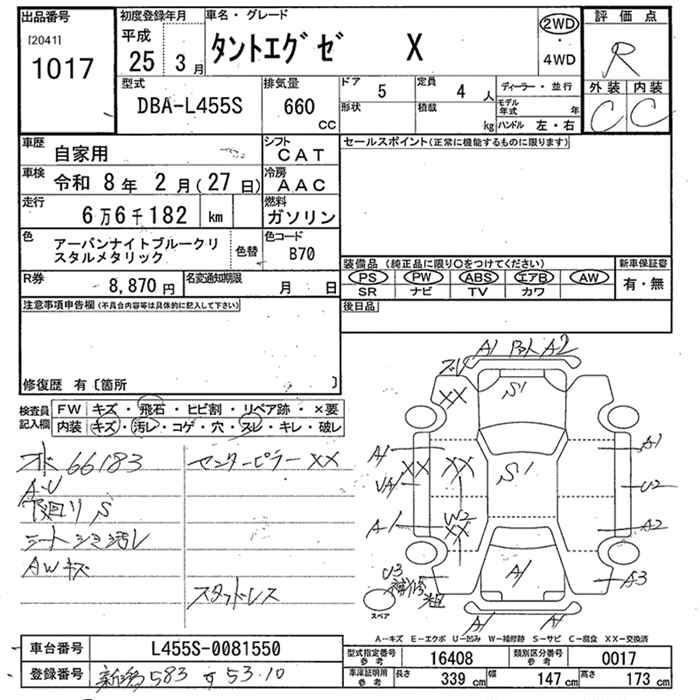 出品番号 初度登録年月 車名・グレード 評価点
[2041] 平成 2WD
1017 25 3月 タントエグゼ X ・ R
4WD
型式 排気量 ドア 5 定員 4 人 ディーラー・並行 外装 内装
DBA-L455S 660 CC 形状 積載 kg モデル年式 年 C C
ハンドル 左・右
車歴 自家用 シフト CAT セールスポイント(正常に機能するものに限ります)
車検 令和 8年 2月(27日) 冷房 AAC
走行 6万6千182 km 燃料 ガソリン
色 アーバンナイトブルークリ 色替 色コード B70
スタルメタリック
装備品(純正品に限り○をつけてください) 新車保証書
R券 8,870円 名変通知期限 月 日 PS PW ABS エアB AW 有・無
SR ナビ TV カワ
注意事項申告欄(不具合内容等は具体的に記入して下さい) 後日品
修復歴 有〔箇所 〕
検査員記入欄 FW キズ・飛石・ヒビ割・リペア跡・×要
内装 キズ・汚レ・コゲ・穴・スレ・キレ・破レ
オド 66183 センターピラーXX
A・U
下廻リ S
シート シミ汚レ
AWキズ
スタッドレス
A1 A2
XX S1
A1 XX XX S1 A1
U2
A1 W2 XX A2
U3 補修粗 A1 A3
スペア A1 A1
A－キズ E－エクボ U－凹み W－補修跡 S－サビ C－腐食 XX－交換済
車台番号 L455S-0081550 型式指定番号 参考 16408 類別区分番号 参考 0017
登録番号 新潟 583 す 53-10 車庫証明用 参考 長さ 339 cm 幅 147 cm 高さ 173 cm